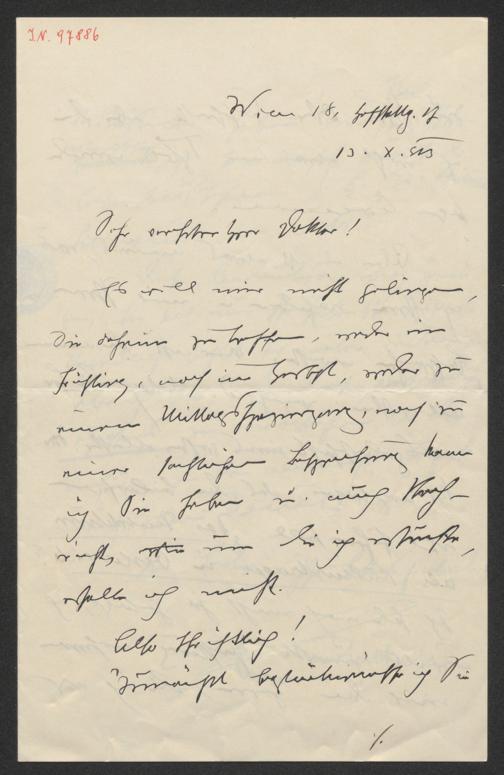 I.N. 97886
Wien 18,
13. X.
Sehr verehrter Herr Doktor!
Es will mir nicht gelingen,
Sie daheim zu treffen, weder im
Frühling, noch im Herbst, weder zu
einem Mittagsspaziergang, noch zu
einer sachlichen Besprechung kann
ich Sie haben u. auch Nach-
richt, um die ich ersuchte,
erhalte ich nicht.
Also schriftlich!
Zunächst beglückwünsche ich Sie
./.